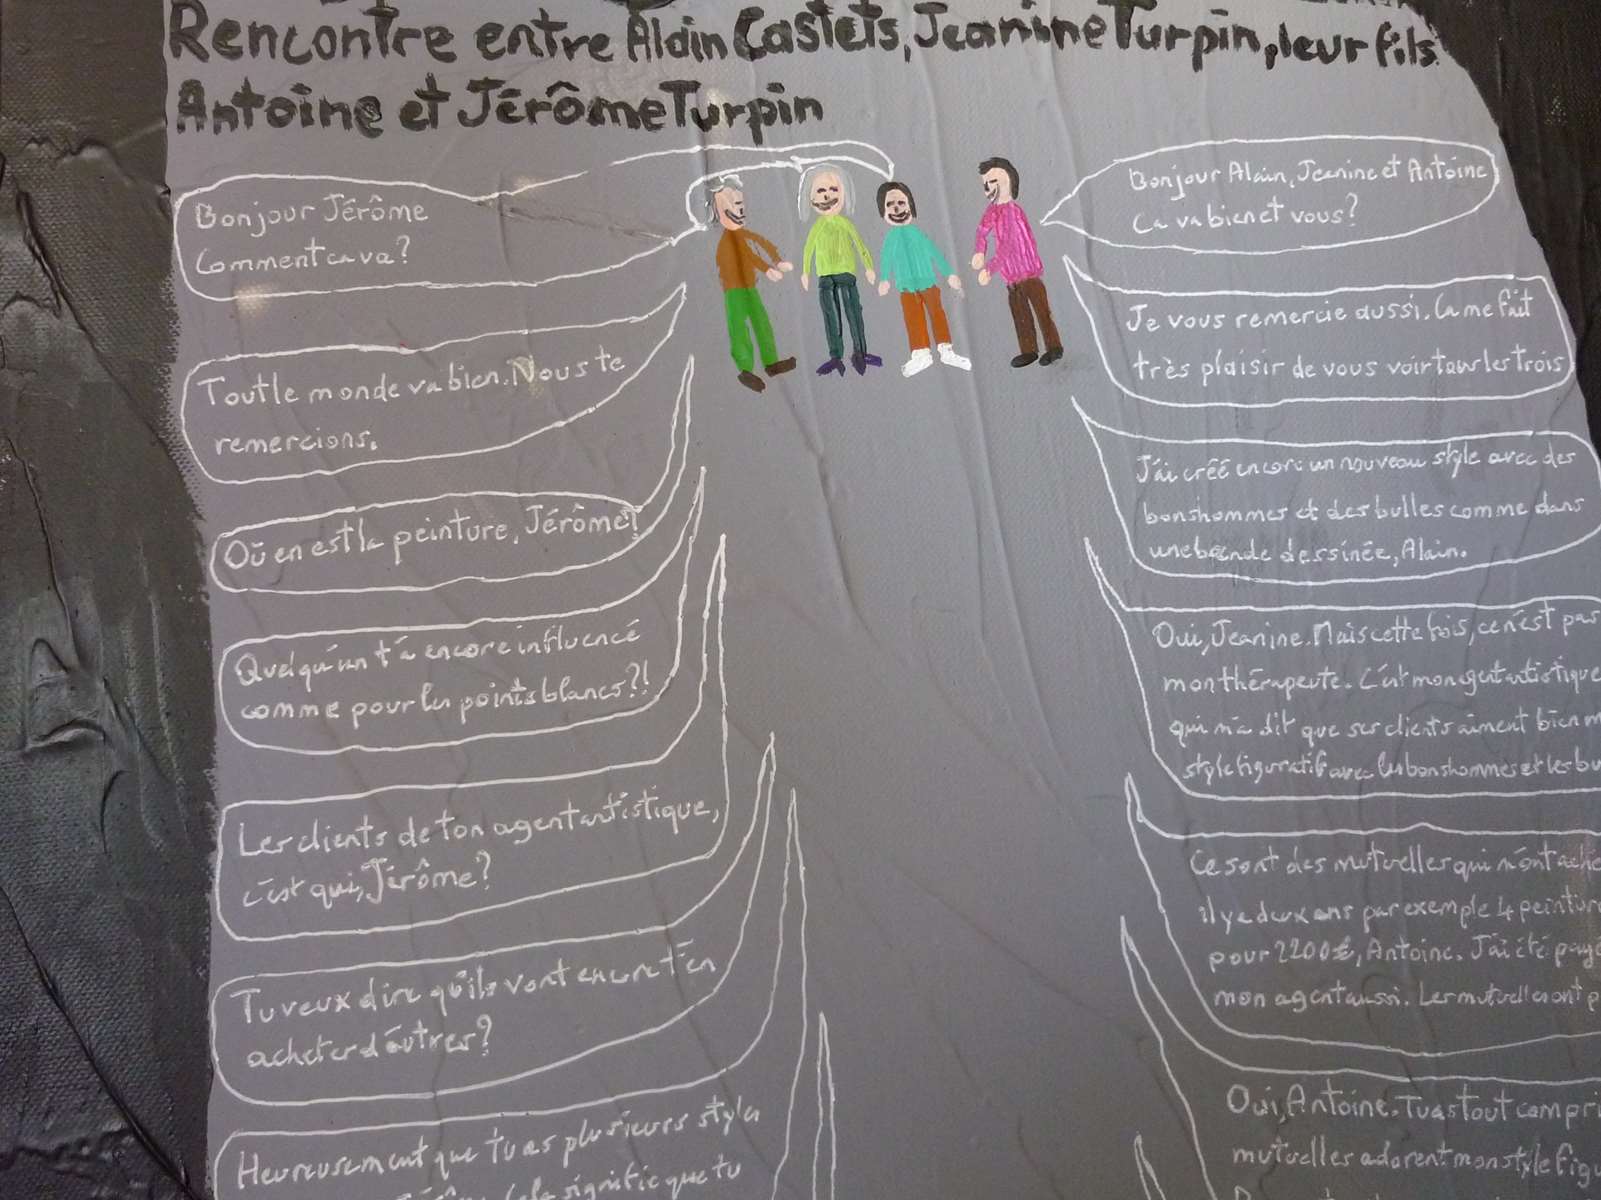 Rencontre entre Alain Castets, Jeanine Turpin, leur fils
Antoine et Jérôme Turpin
Bonjour Jérôme
Comment ca va?
Bonjour Alain, Jeanine et Antoine
Ca va bien et vous?
Tout le monde va bien. Nous te
remercions.
Je vous remercie aussi. Ca me fait
très plaisir de vous voir tous les trois
Où en est la peinture, Jérôme?
J'ai créé encore un nouveau style avec des
bonshommes et des bulles comme dans
une bande dessinée, Alain.
Quelqu'un t'a encore influencé
comme pour les points blancs?!
Oui, Jeanine. Mais cette fois, ce n'est pas
mon thérapeute. C'est mon agent artistique
qui m'a dit que ses clients aiment bien m
style figuratif avec les bonshommes et les bu
Les clients de ton agent artistique,
c'est qui, Jérôme?
Ce sont des mutuelles qui m'ont
il y a deux ans par exemple 4 peinture
pour 2200€, Antoine. J'ai été payé
mon agent aussi. Les mutuelles ont p
Tu veux dire qu'ils vont encore t'en
acheter d'autres?
Oui, Antoine. Tu as tout compri
mutuelles adorent mon style figu
Heureusement que tu as plusieurs styles
Cela signifie que tu